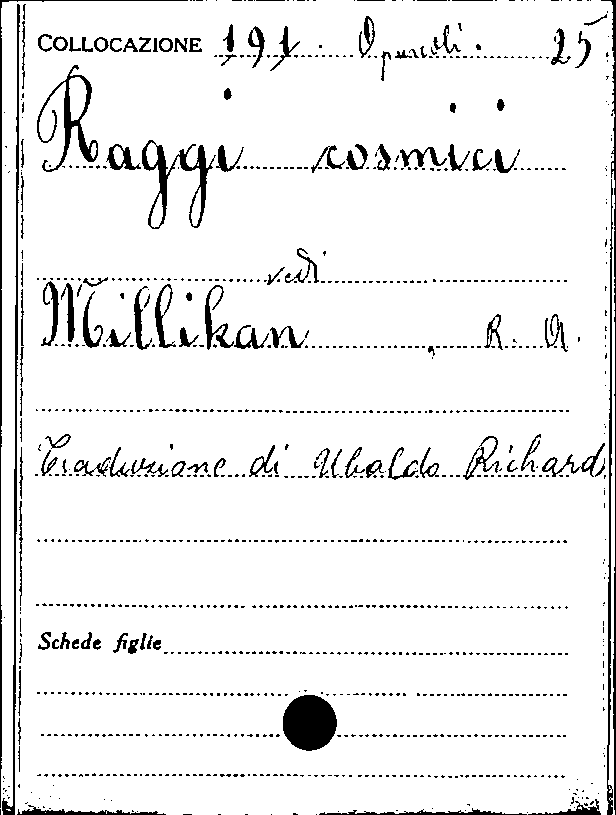 COLLOCAZIONE 191. Opuscoli. 25
Raggi cosmici
vedi
Millikan, R. A.
Traduzione di Ubaldo Richard
Schede figlie